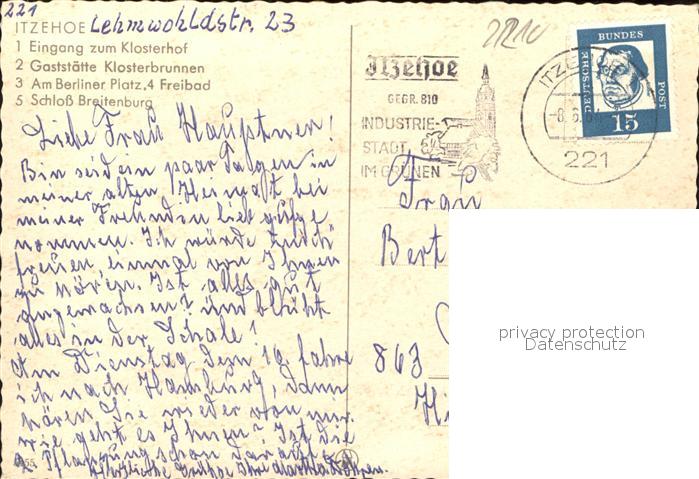 221
Lehmwohldstr. 23
ITZEHOE
1 Eingang zum Klosterhof
2 Gaststätte Klosterbrunnen
3 Am Berliner Platz, 4 Freibad
5 Schloß Breitenburg
Liebe Frau Hauptner!
Bin seid ein paar Tagen in
meiner alten Heimaft bei
meiner Freundin lieb aufge
nommen. Ich würde
freuen, einmal von Ihnen
zu hören. Ist alles gut
angewachsen? und blüht
alles in der Schale!
Am Dienstag den 10. fahre
ich nach Hamburg, dann
hören Sie wieder von mir.
wie geht es Ihnen? Ist die
Pflanzung schon
Herzliche Grüße Ihre
Itzehoe
GEGR. 810
INDUSTRIE-
STADT
IM GRÜNEN
ITZEHOE
221
DEUTSCHE BUNDES POST
15
Frau
Bert
863
privacy protection
Datenschutz